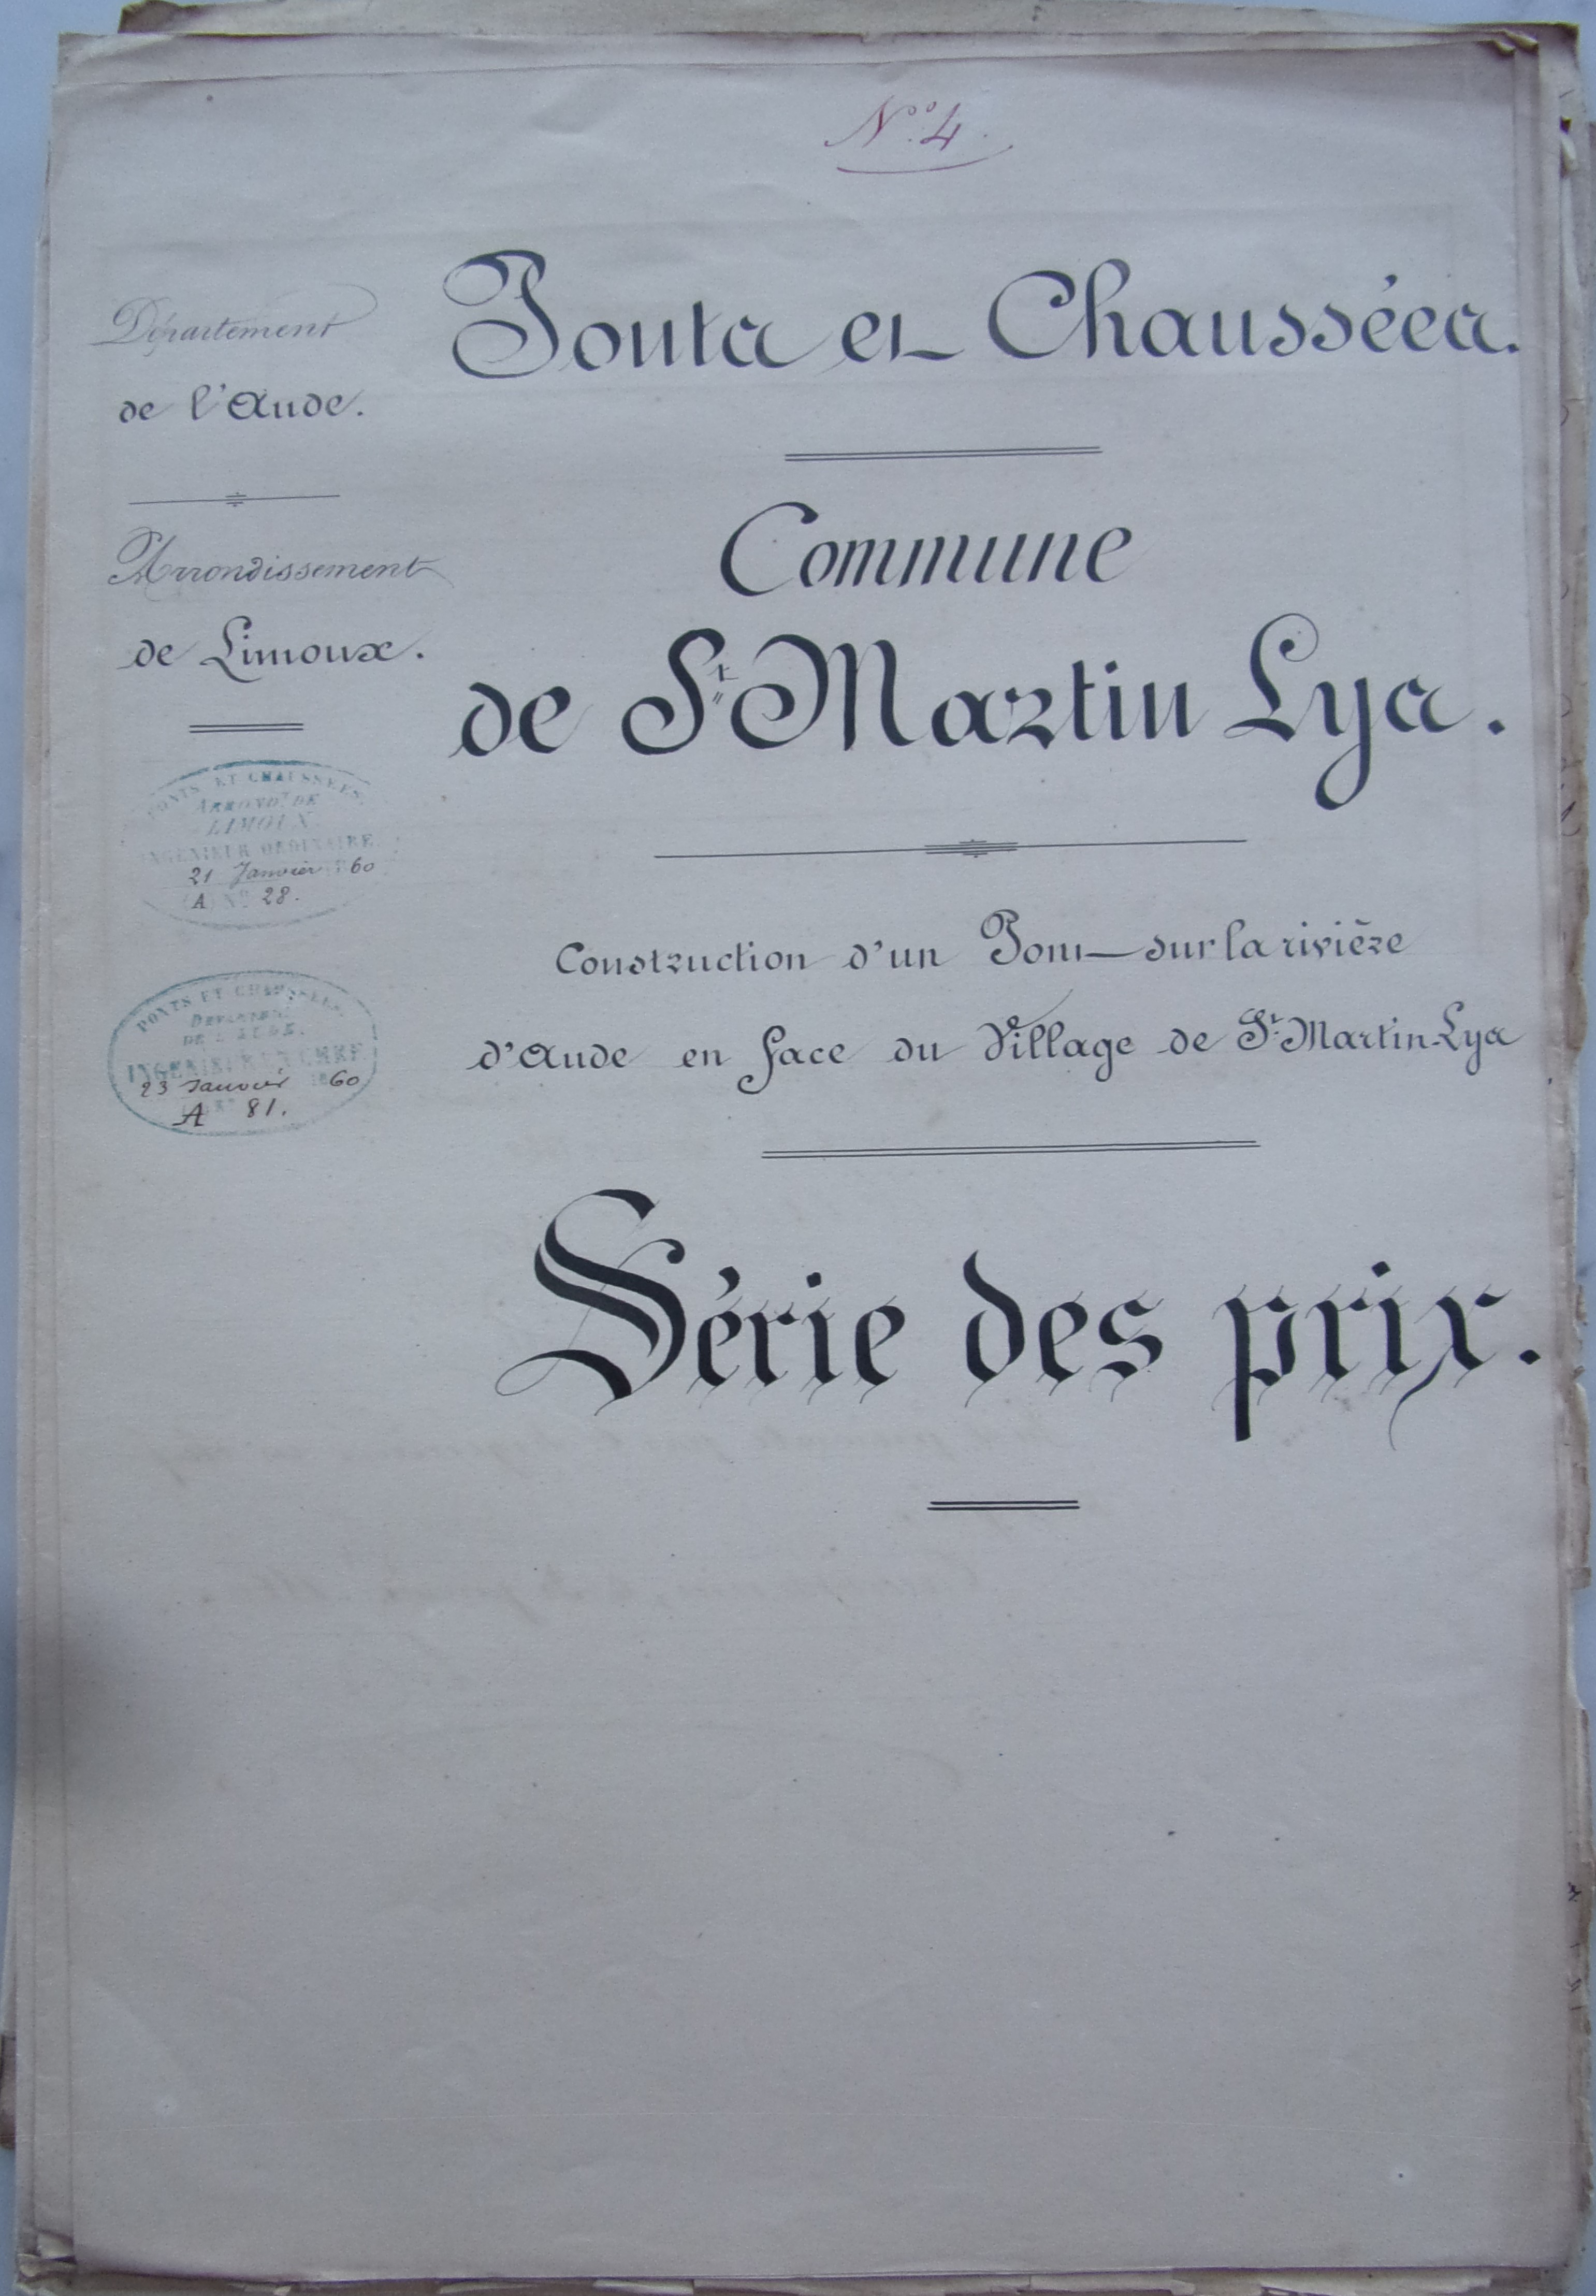 N° 4.
Département
de l'Aude.
Arrondissement
de Limoux.
PONTS ET CHAUSSÉES.
ARRONDT DE
LIMOUX
INGÉNIEUR ORDINAIRE
21 Janvier 1860
(A) N° 28.
PONTS ET CHAUSSÉES.
DÉPARTEMT
DE L'AUDE.
INGÉNIEUR EN CHEF
23 Janvier 1860
A 81.
Ponts et Chaussées.
Commune
de St Martin Lys.
Construction d'un Pont sur la rivière
d'Aude en face du Village de St Martin-Lys
Série des prix.